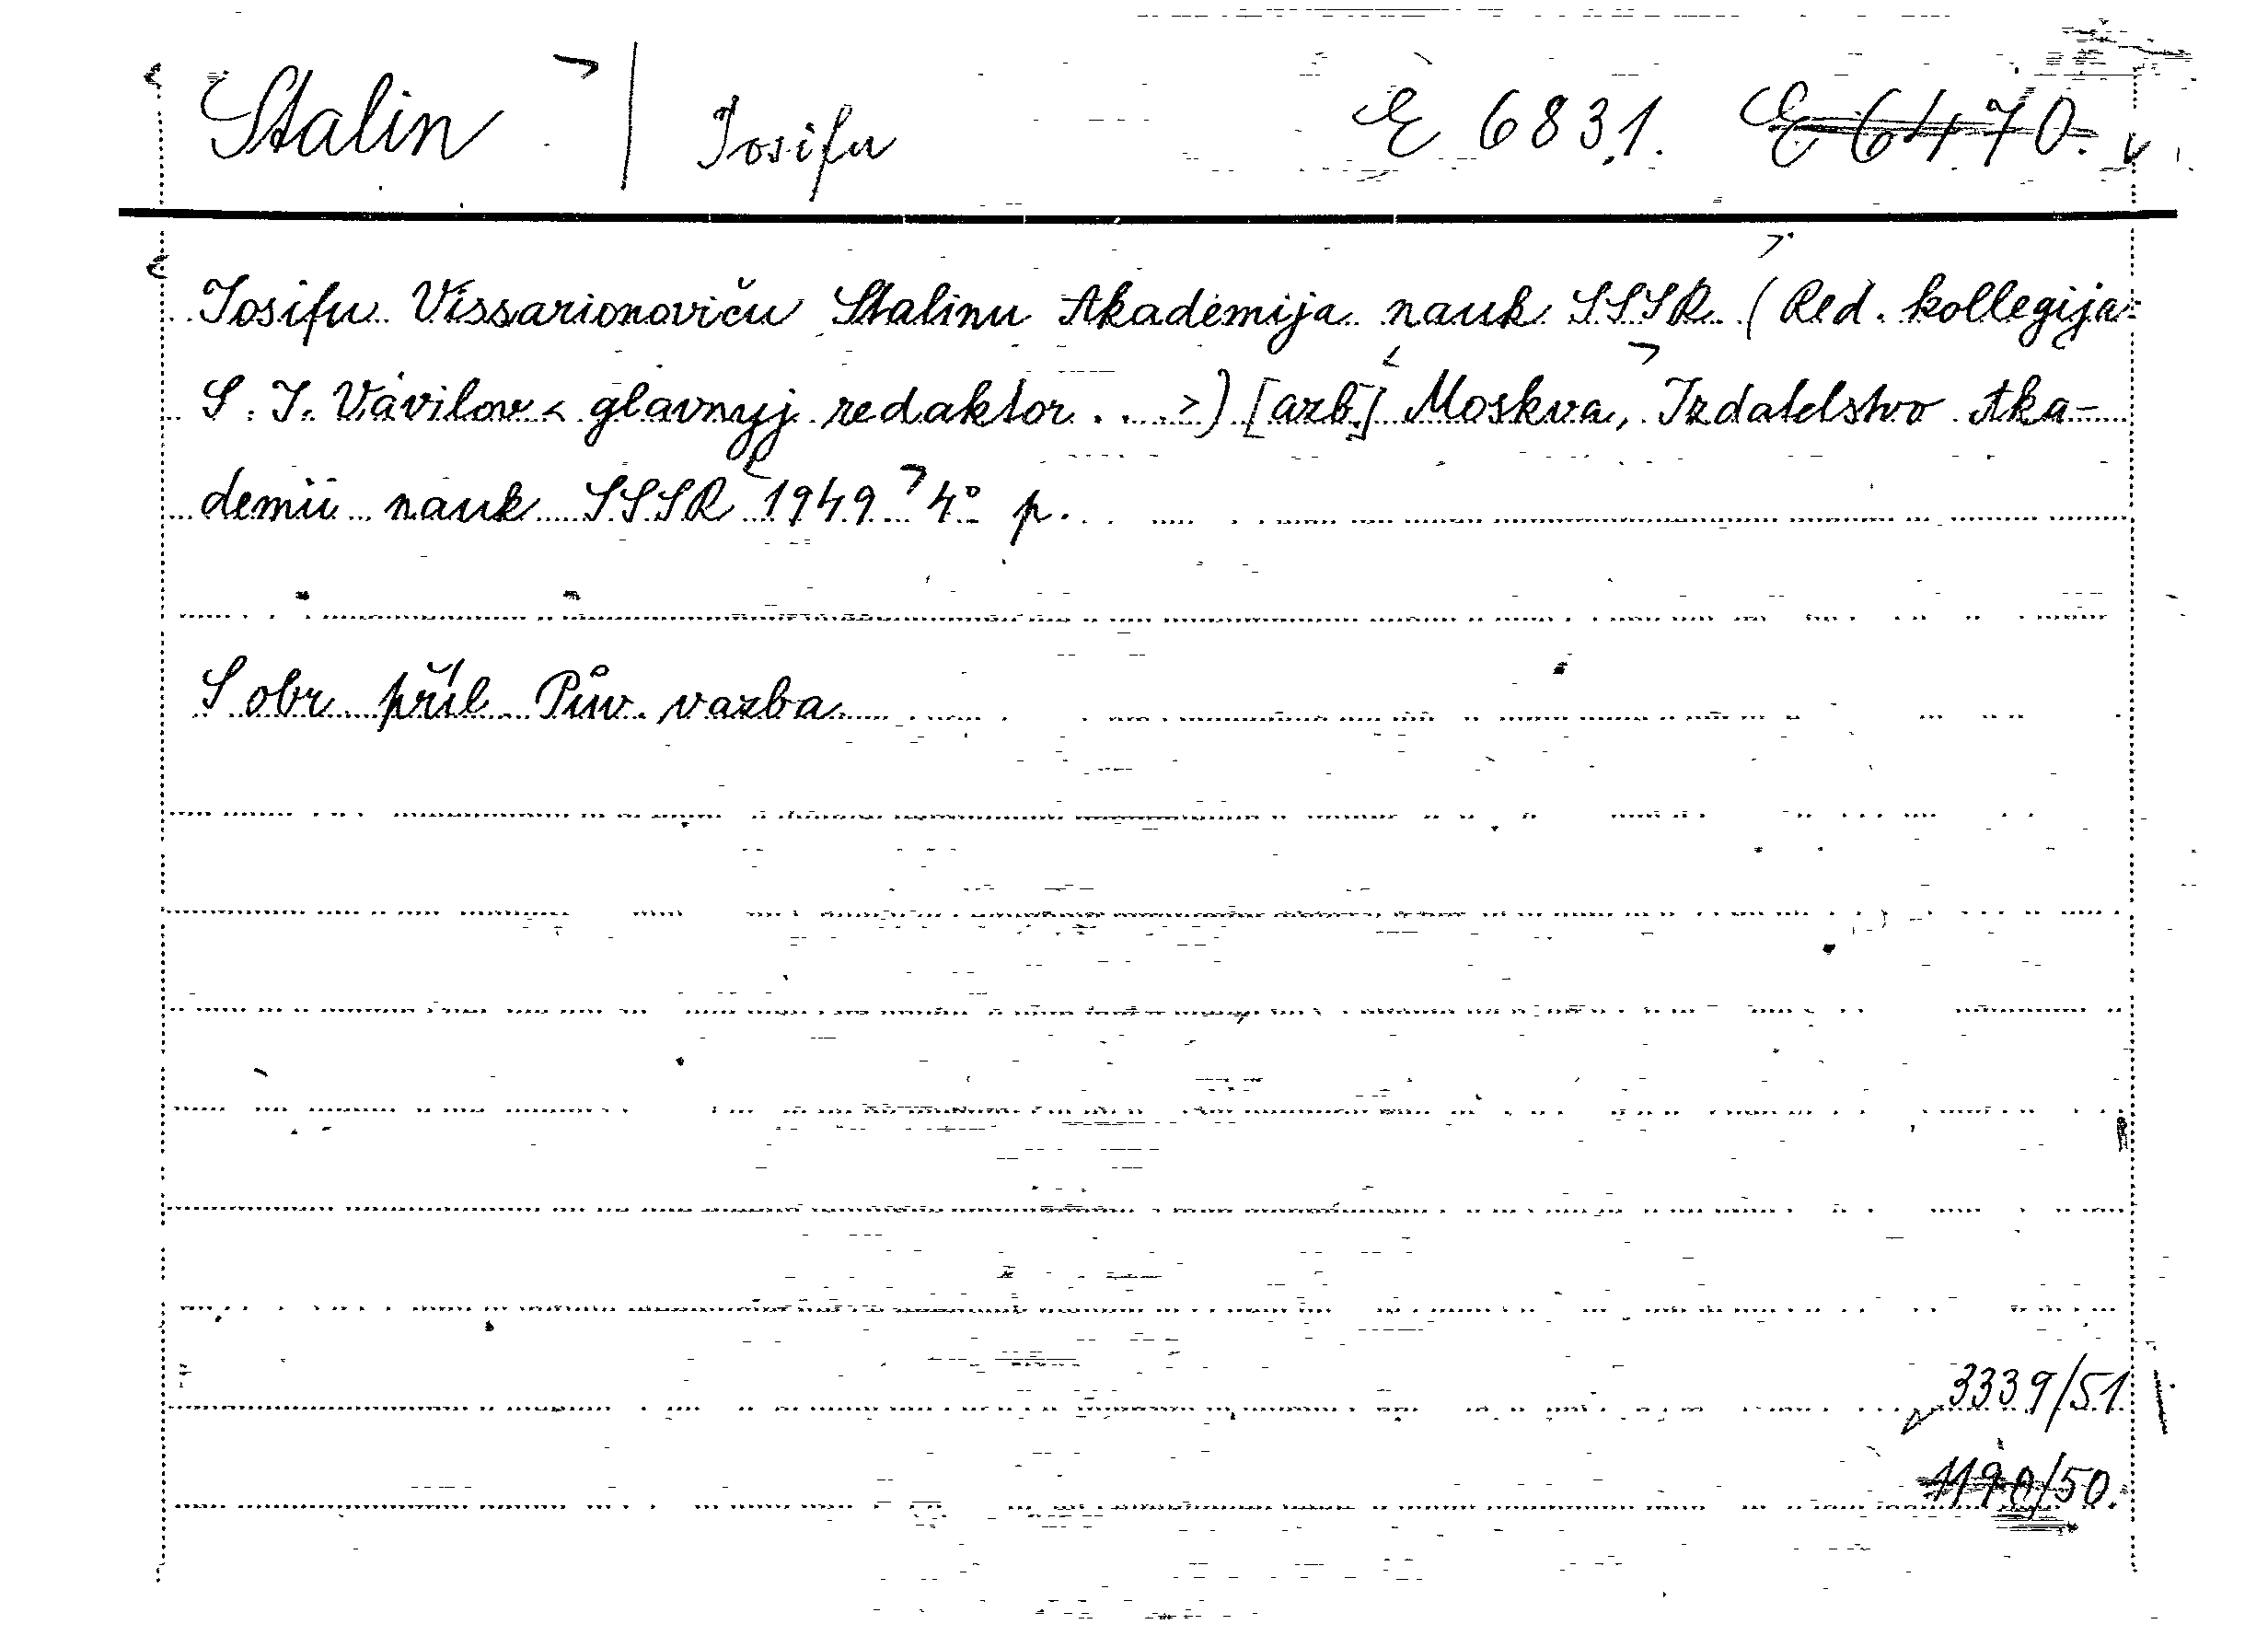 Stalin | Iosifu E 6831. E 6470.
Iosifu Vissarionoviču Stalinu Akademija nauk SSSR (Red. kollegija:
S. I. Vavilov < glavnyj redaktor . . . >) [azb.] Moskva, Izdatelstvo Aka-
demii nauk SSSR 1949 4° p.
S obr. příl. Pův. vazba.
3339/51
1190/50.